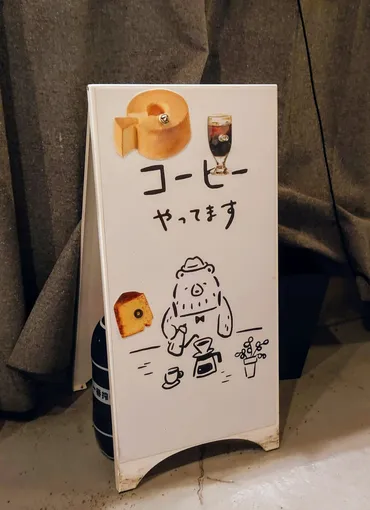 コーヒー
やってます